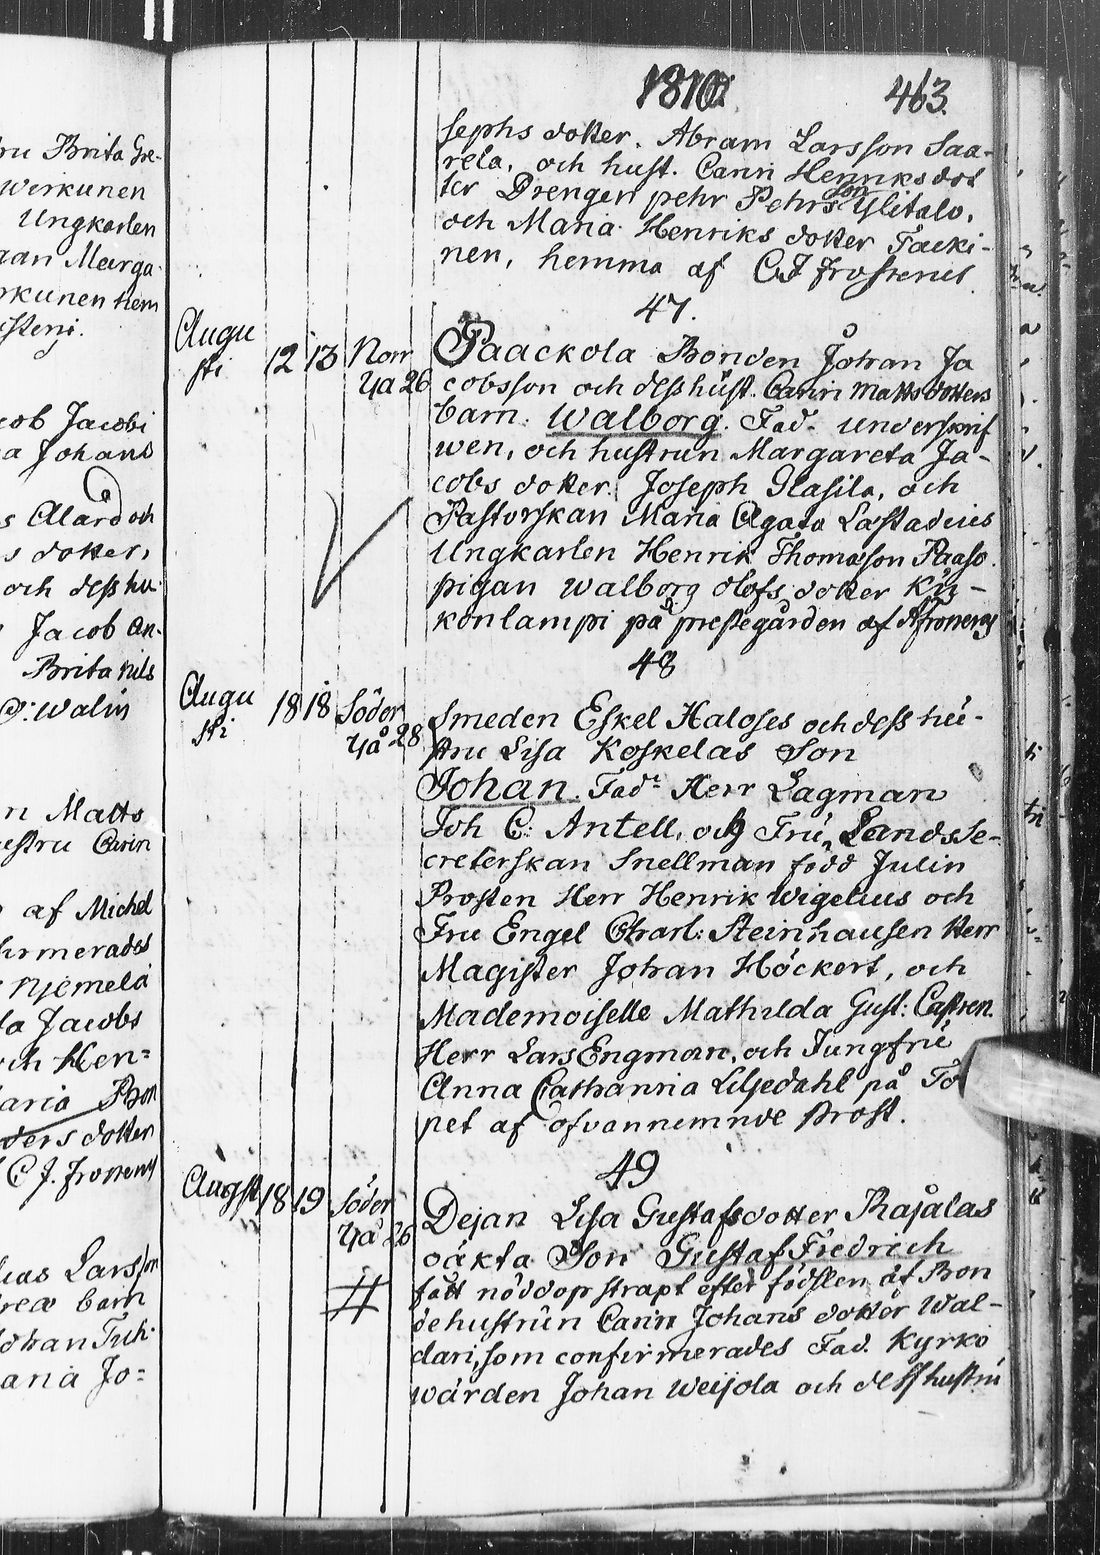 ru Brita Gre-
Wirkunen
Ungkarlen
Marga-
rkunen hem
cob Jacobi
a Johans
s Alard och
s dotter,
och dess hu-
Jacob An-
Brita Nils
Walin
n Matts
ustru Carin
af Michel
firmerades
Njemelä
la Jacobs
och Hen=
aria Bon
ders dotter
C J. Frosterus
Lars son
rea barn
Johan
ana Jo=
1810 463.
sephs dotter. Abram Larsson Saa-
rela, och hust. Carin Henriksdot
ter Drengen pehr Pehrsson Ylitalo,
och Maria Henriks dotter Tacki-
nen, hemma af C J Frosterus
47.
Augu
sti 12 13 Norr
yå 26
Paackola Bonden Johan Ja
cobsson och dess hust. Carin Matts dotters
barn. Walborg. Fad. underskrif
wen, och hustrun Margareta Ja-
cobs dotter. Joseph Glasila, och
Pastorskan Maria Agata Læstadius
Ungkarlen Henrik Thomasson Paaso.
pigan Walborg Olofs dotter Ku-
konlampi på prestegården af Frosterus
48
Augu
sti 18 18 Söder
yå 28
Smeden Eskel Haloses och dess hu-
stru Lisa Koskelas Son
Johan. Fad: Herr Lagman
Joh C: Antell, och Fru Lands Se-
creterskan Snellman född Julin
Prosten Herr Henrik Wigelius och
Fru Engel Charl: Steinhausen Herr
Magister Johan Höckert, och
Mademoiselle Mathilda Gust: Castren.
Herr Lars Engman, och Jungfru
Anna Catharina Liljedahl på To
net af ofvannemnde Prost.
49
Augst 18 19 Söder
yå 26
Dejan Lisa Gustafsdotter Rajalas
oäkta Son Gustaf Fredrich
fått nöddop strax efter födslen af Bon
dehustrun Carin Johans dotter Wal-
dari, som confirmerades Fad. Kyrko
wärden Johan Weijola och dess hustru